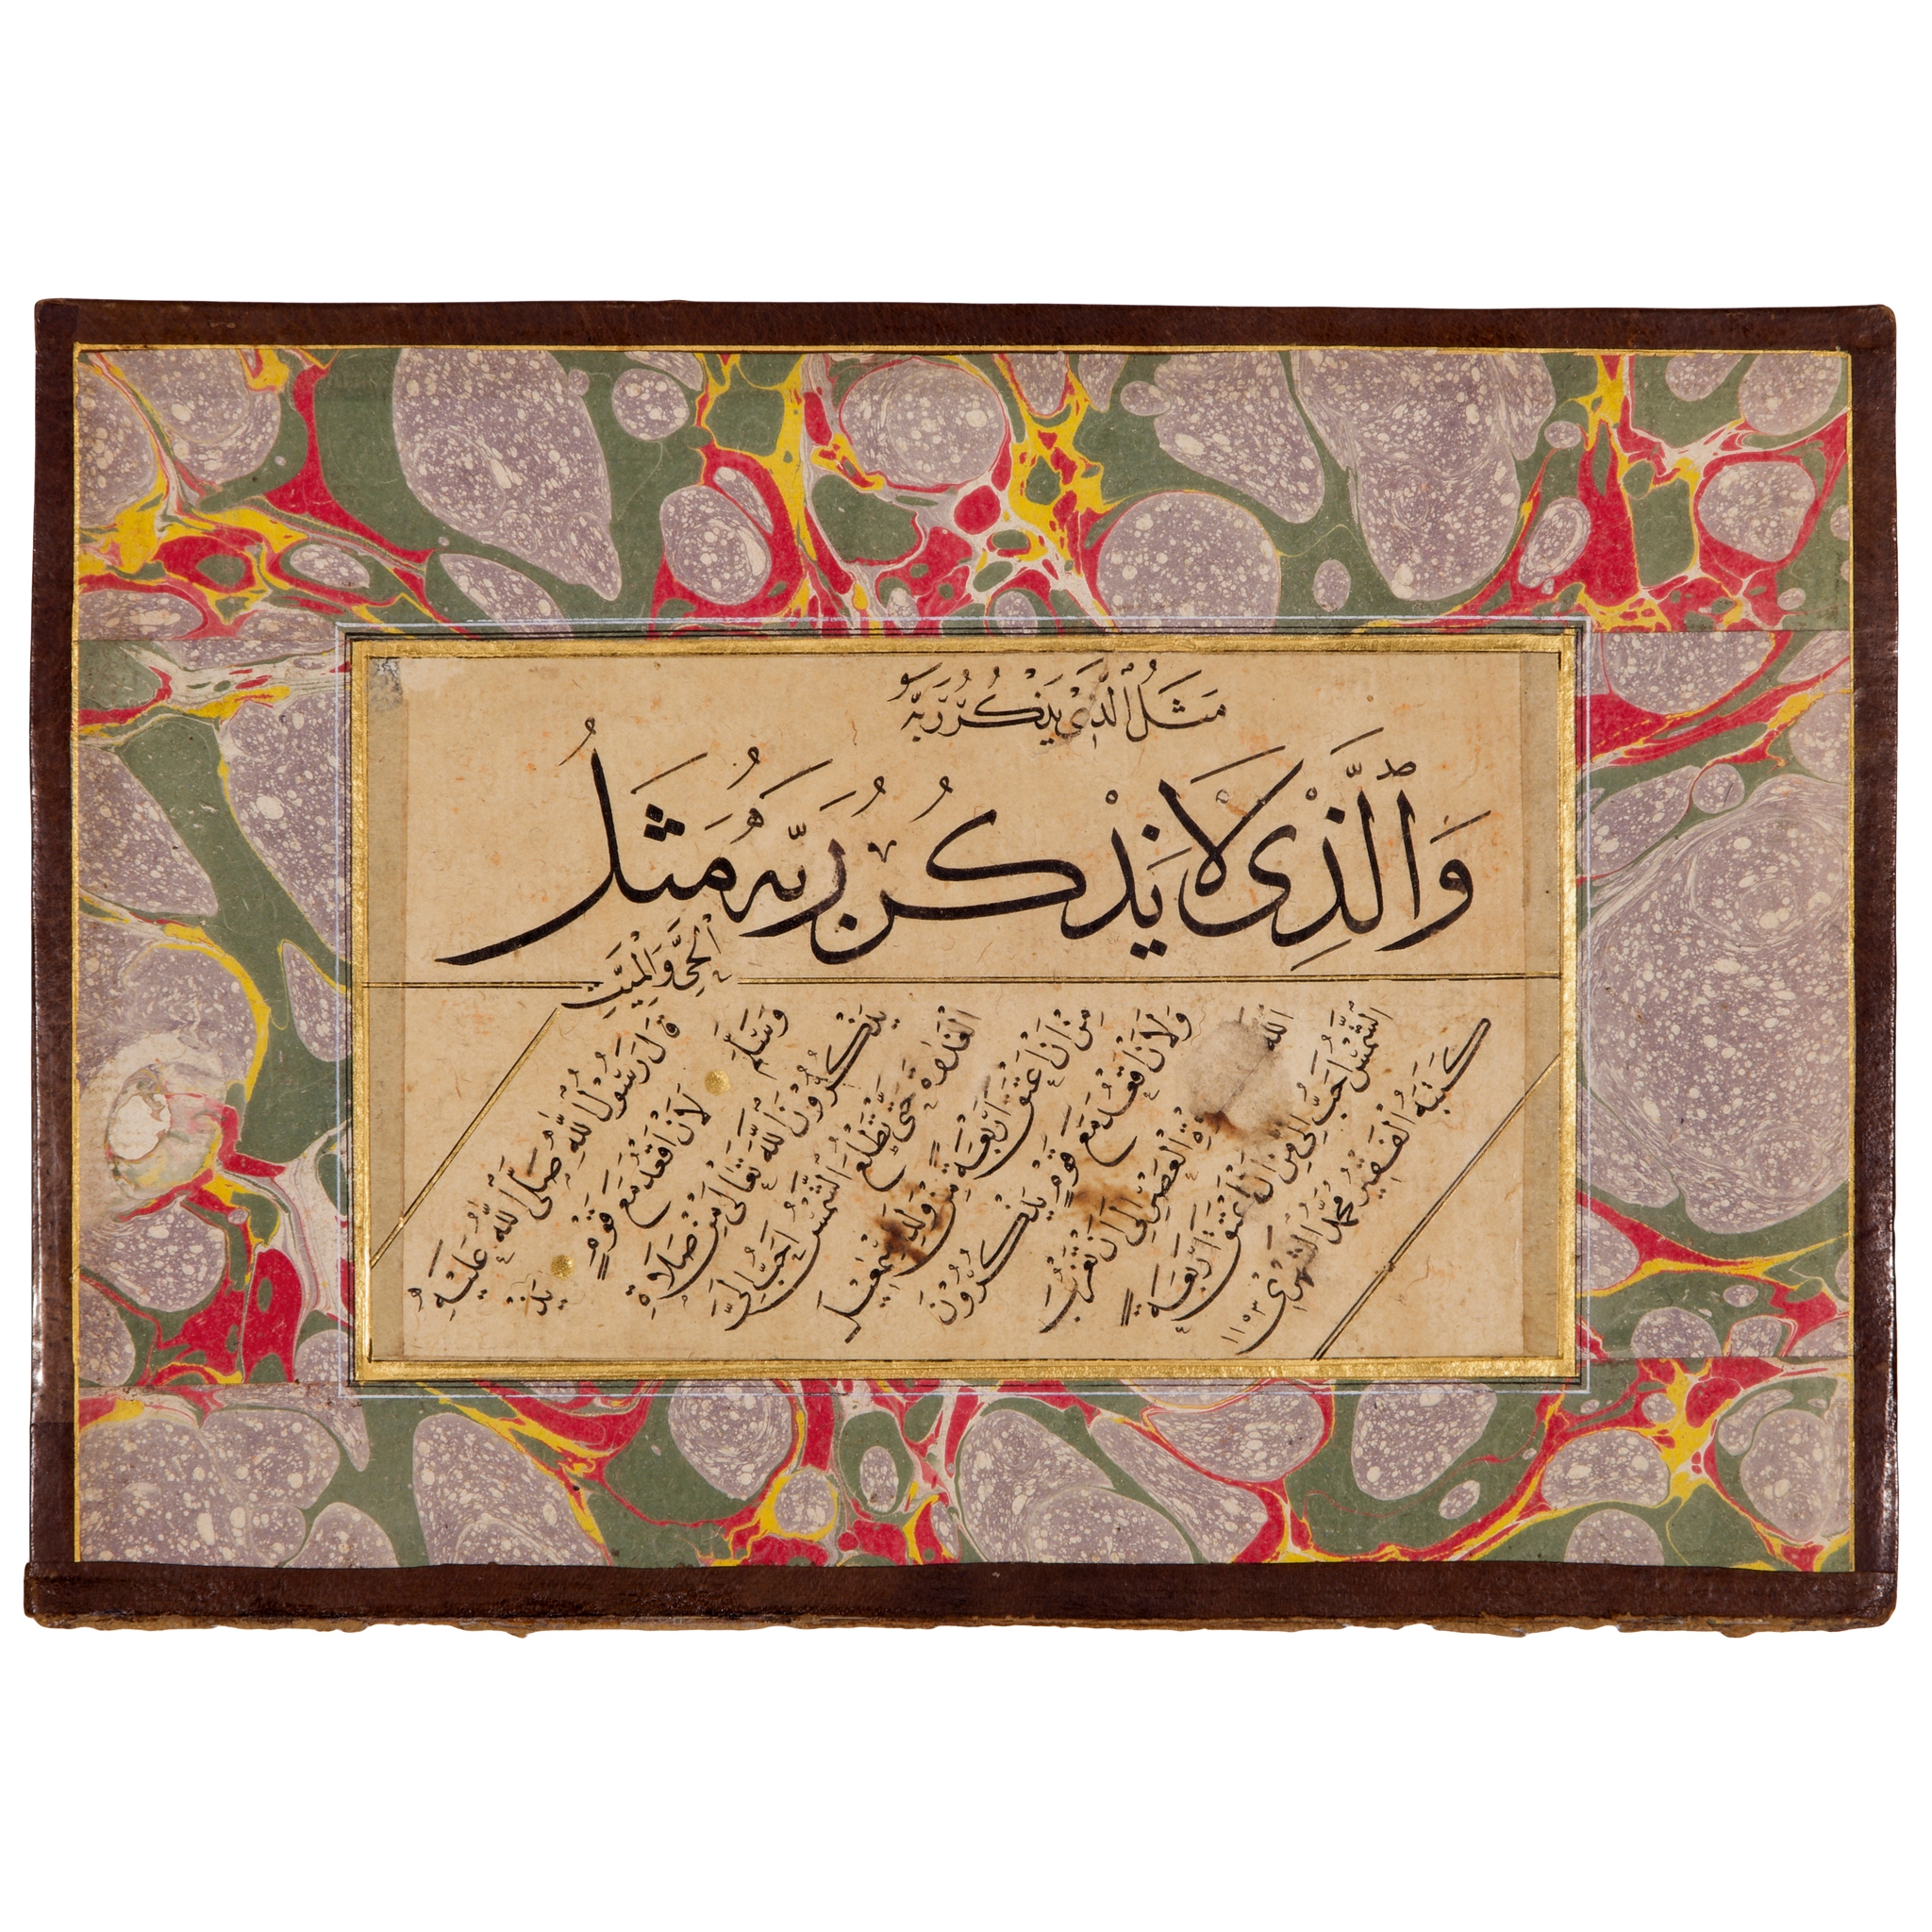 مَثَلُ الَّذِي يَذْكُرُ رَبَّهُ
وَالَّذِي لَا يَذْكُرُ رَبَّهُ مَثَلُ
الْحَيِّ وَالْمَيِّتِ
قَالَ رَسُولُ اللهِ صَلَّى اللهُ عَلَيْهِ
وَسَلَّمَ لَأَنْ أَقْعُدَ مَعَ قَوْمٍ يذ
يَذْكُرُونَ اللهَ تَعَالَى مِنْ صَلَاةِ
الْغَدَاةِ حَتَّى تَطْلُعَ الشَّمْسُ أَحَبُّ إِلَيَّ
مِنْ أَنْ أَعْتِقَ أَرْبَعَةً مِنْ وَلَدِ إِسْمَعِيلَ
وَلَأَنْ أَقْعُدَ مَعَ قَوْمٍ يَذْكُرُونَ
اللهَ الْعَصْرِ إِلَى أَنْ تَغْرُبَ
الشَّمْسُ أَحَبُّ إِلَيَّ مِنْ أَنْ أَعْتِقَ أَرْبَعَةً
كَتَبَهُ الْفَقِيرُ مُحَمَّدُ الشَّهْرِي ١١٥٣